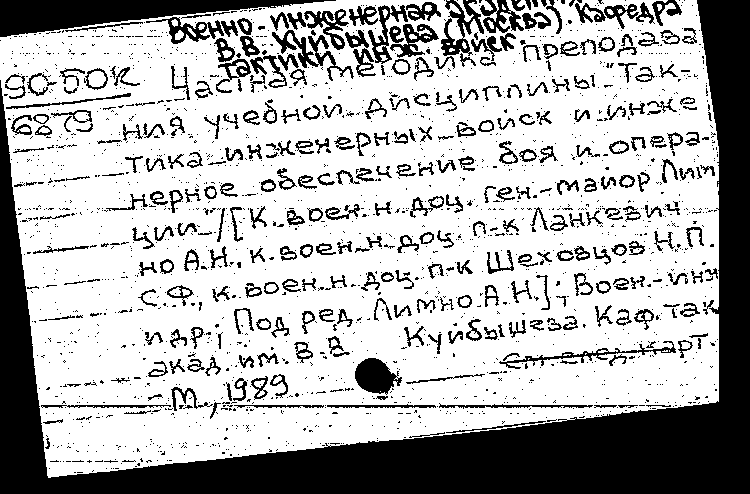 Военно-инженерная академия
В.В. Куйбышева (Москва). Кафедра
тактики инж. войск
90-50К Частная методика преподава
6879 ния учебной дисциплины "Так-
тика инженерных войск и инже
нерное обеспечение боя и опера-
ции"/[К. воен. н. доц. ген.-майор Лим
но А.Н., к. воен. н. доц. п-к Ланкевич
С.Ф., к. воен. н. доц. п-к Шеховцов Н.П.
и др.; Под ред. Лимно А.Н.]; Воен.-инж
акад. им. В.В Куйбышева. Каф. так
- М., 1989. См. след. карт.